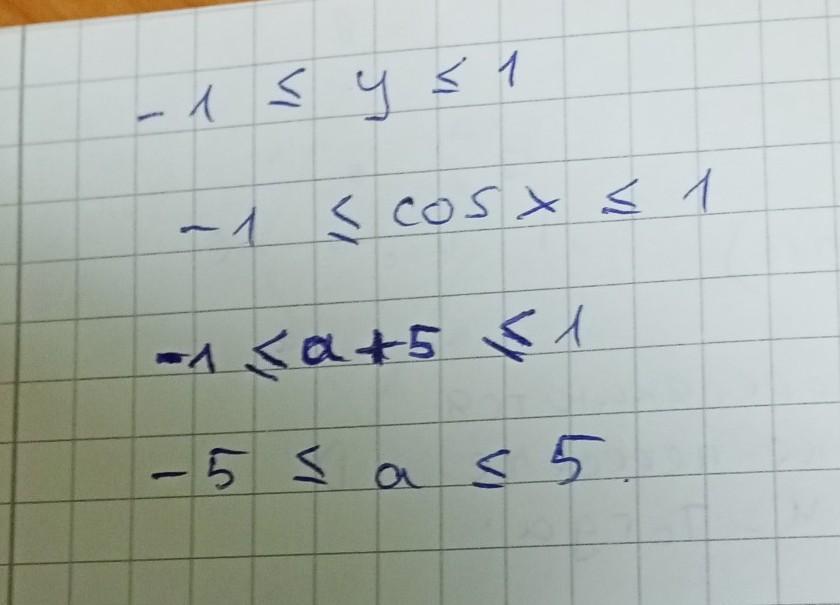 -1 ≤ y ≤ 1
-1 ≤ cos x ≤ 1
-1 ≤ a+5 ≤ 1
-5 ≤ a ≤ 5.